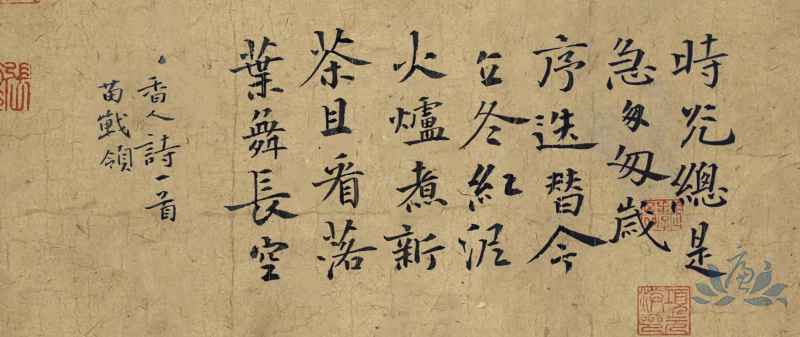 時光總是
急匆匆歲
序迭替今
立冬紅泥
火爐煮新
茶且看落
葉舞長空
香人詩一首
苗戰領
廉